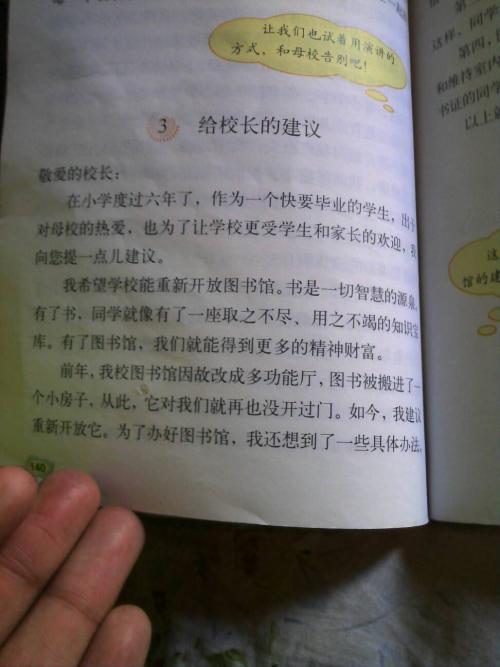 让我们也试着用演讲的
方式，和母校告别吧！
3 给校长的建议
敬爱的校长：
在小学度过六年了，作为一个快要毕业的学生，出于
对母校的热爱，也为了让学校更受学生和家长的欢迎，我
向您提一点儿建议。
我希望学校能重新开放图书馆。书是一切智慧的源泉，
有了书，同学就像有了一座取之不尽、用之不竭的知识宝
库。有了图书馆，我们就能得到更多的精神财富。
前年，我校图书馆因故改成多功能厅，图书被搬进了一
个小房子，从此，它对我们就再也没开过门。如今，我建议
重新开放它。为了办好图书馆，我还想到了一些具体办法。
140
第二
这样，同学
第四，
和维持室内
书证的同学
以上
这
馆的建